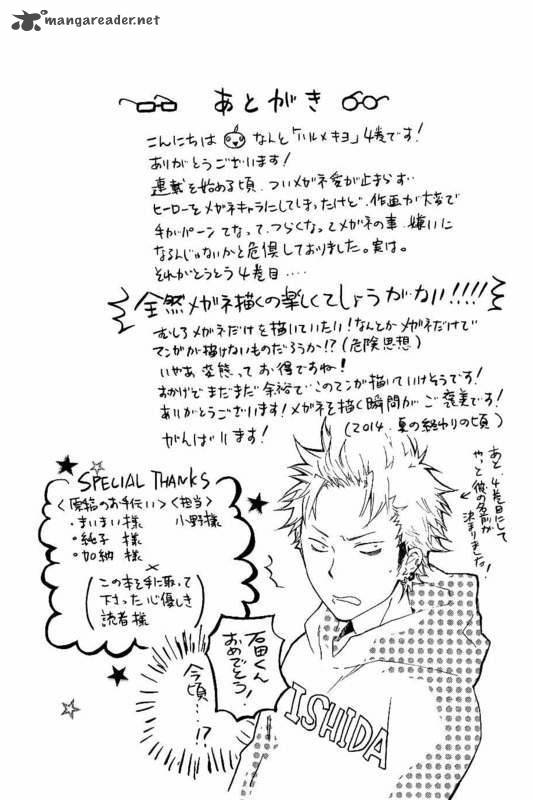 mangareader.net
あとがき
こんにちは なんと「ハルメキヨ」4巻です!
ありがとうございます!
連載を始める頃、ついメガネ愛が止まらず…
ヒーローをメガネキャラにしてしまったけど、作画が大変で
手がパーンてなって、つらくなってメガネの事、嫌いに
なるんじゃないかと危惧しておりました。実は。
それがとうとう4巻目....
全然メガネ描くの楽しくてしょうがない!!!!
むしろメガネだけを描いていたい!なんとかメガネだけで
マンガが描けないものだろうか!?(危険思想)
いやあ変態ってお得ですね!
おかげでまだまだ余裕でこのマンガ描いていけそうです!
ありがとうございます!メガネを描く瞬間がご褒美です!
がんばります!
(2014.夏の終わりの頃)
あと、4巻目にして
やっと彼の名前が
決まりました!
SPECIAL THANKS
<原稿のお手伝い>
・まいまい様
・純子様
・加納様
<担当>
小野様
×
(この本を手に取って
下さった心優しき
読者様)
石田くん
おめでとう!
今頃…!?
ISHIDA